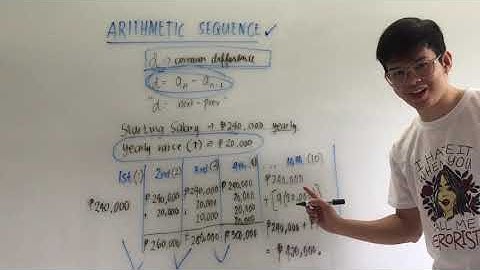 ARITHMETIC SEQUENCE ✓
d → common difference
d = aₙ - aₙ₋₁
"d = next - prev"
Starting Salary → ₱240,000 yearly
Yearly raise (↑) → ₱20,000
1st (1) 2nd (2) 3rd (3) 4th (4) ... 10th (10)
₱240,000 ₱240,000 ₱240,000 ₱240,000 ₱240,000
20,000 20,000 20,000
20,000 20,000
20,000
₱260,000 ₱280,000 ₱300,000 ₱240,000 +
= ₱420,000.
I HATE IT
WHEN YOU
CALL ME
TERRORIST